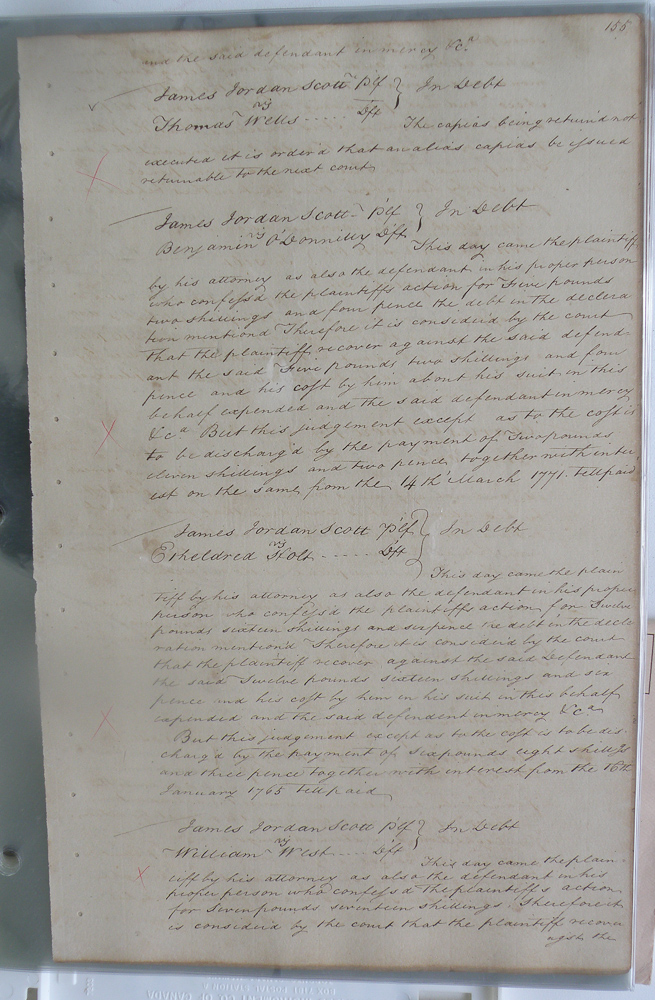 155
and the said defendant in mercy &ca
James Jordan Scott Plf } In Debt
vs
Thomas Wells ..... Dft
The capias being return'd not
executed it is order'd that an alias capias be issued
returnable to the next court
James Jordan Scott Plf } In Debt
vs
Benjamin O'Donnilly Dft
This day came the plaintiff
by his attorney as also the defendant in his proper person
who confess'd the plaintiffs action for Five pounds
two shillings and four pence the debt in the declara
tion mention'd Therefore it is consider'd by the court
that the plaintiff recover against the said defend-
ant the said Five pounds two shillings and four
pence and his cost by him about his suit in this
behalf expended and the said defendant in mercy
&ca But this judgement except as to the cost is
to be discharg'd by the payment of Two pounds
eleven shillings and two pence together with inter
est on the same from the 14th March 1771. till paid
James Jordan Scott Plf } In Debt
vs
Etheldred Holt ..... Dft
This day came the plain
tiff by his attorney as also the defendant in his proper
person who confess'd the plaintiffs action for Twelve
pounds sixteen shillings and sixpence the debt in the decla
ration mention'd Therefore it is consider'd by the court
that the plaintiff recover against the said Defendant
the said Twelve pounds sixteen shillings and six
pence and his cost by him in his suit in this behalf
expended and the said defendant in mercy &ca
But this judgement except as to the cost is to be dis-
charg'd by the payment of six pounds eight shills
and three pence together with interest from the 16th
January 1765 till paid
James Jordan Scott Plf } In Debt
vs
William West .... Dft
This day came the plain-
tiff by his attorney as also the defendant in his
proper person who confess'd the plaintiffs action
for Seven pounds seventeen shillings Therefore it
is consider'd by the court that the plaintiff recover
agst the